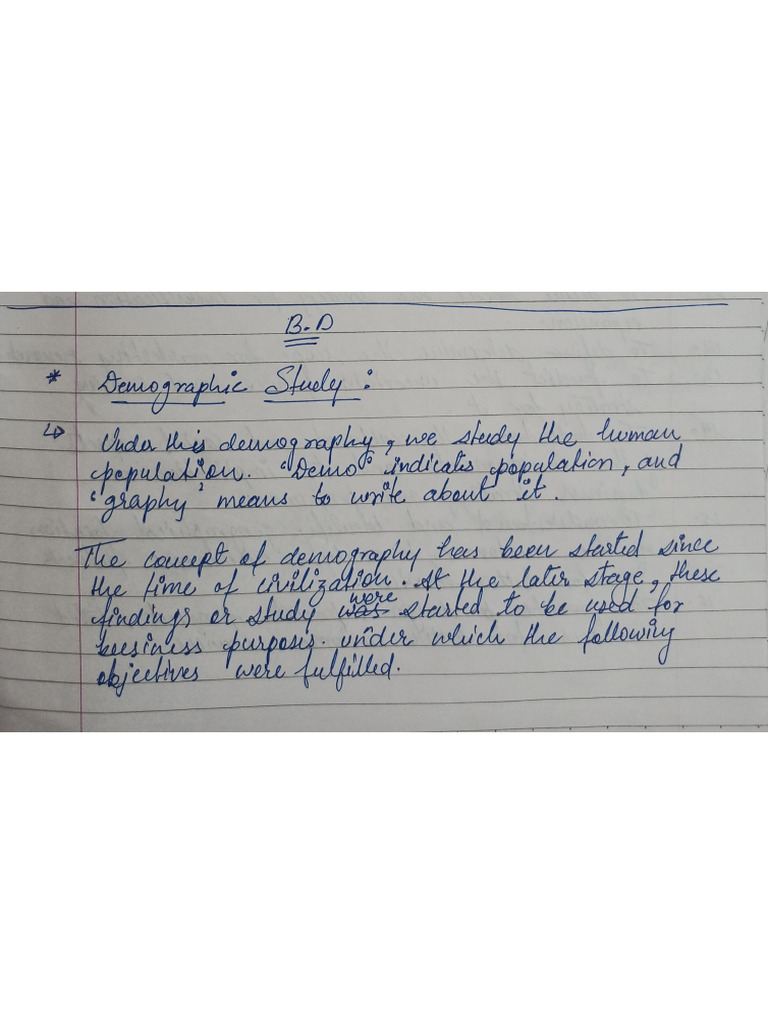 B.D
* Demographic Study :
↳ Under this demography, we study the human
population. "Demo" indicates population, and
'graphy' means to write about it.
The concept of demography has been started since
the time of civilization. At the later stage, these
findings or study was were started to be used for
business purposes. under which the following
objectives were fulfilled.